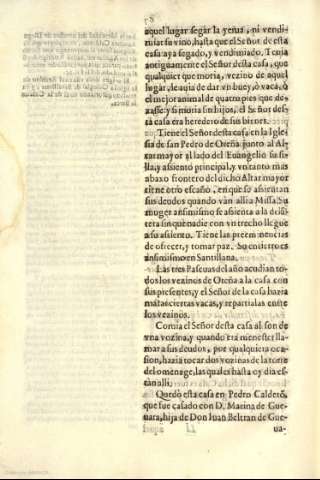 aquel lugar segar la yerua, ni vendi-
miar su vino, hasta que el Señor de esta
casa aya segado, y vendimiado. Tenia
antiguamente el Señor desta casa, que
qualquier que moria, vezino de aquel
lugar, le auia de dar vn buey, o vaca, ò
el mejor animal de quatro pies que de-
xasse: y si moria sin hijos, el Señor des-
ta casa era heredero de sus bienes.
Tiene el Señor desta casa en la Igle
sia de san Pedro de Oreña junto al Al-
tar mayor al lado del Euangelio su si-
lla, y assiento principal, y vn tanto mas
abaxo frontero del dicho Altar mayor
tiene otro escaño, en que se assientan
sus deudos quando van allia Missa. Su
muger ansimismo se assienta a la delã-
tera sin que nadie con vn trecho llegue
a su assiento. Tiene las preeminencias
de ofrecer, y tomar paz. Su entierro es
ansimismo en Santillana.
Las tres Pascuas del año acudian to-
dos los vezinos de Oreña a la casa con
sus presentes, y el Señor de la casa hazia
matar ciertas vacas, y repartialas entre
los vezinos.
Comia el Señor desta casa al son de
vna vozina, y quando era menester lla-
mar a sus deudos, por qualquiera oca-
sion, hazia tocar dos vozinas de la torre
del omenage, las quales hasta oy dia es-
tàn alli.
Quedò esta casa en Pedro Calderõ,
que fue casado con D. Marina de Gue-
uara, hija de Don Juan Beltran de Gue-
ua-